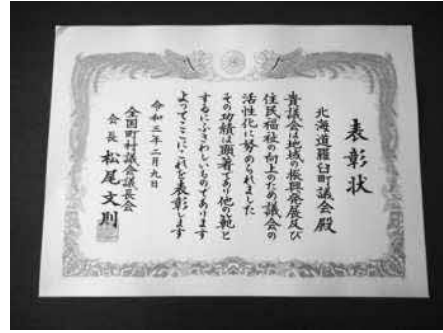 表彰状
北海道羅臼町議会殿
貴議会は地域の振興発展及び
住民福祉の向上のため議会の
活性化に努められました
その功績は顕著であり他の範と
するにふさわしいものであります
よってここにこれを表彰します
令和三年二月九日
全国町村議会議長会
会長 松尾文則